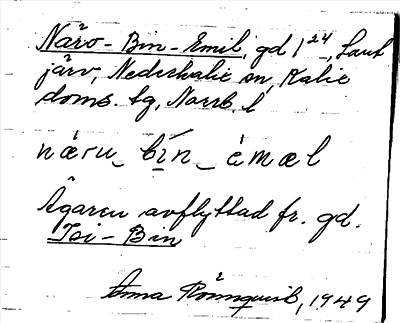 Näro-Bin-Emil, gd 1²⁴, Laut
järv, Nederkalix sn, Kalix
doms. tg, Norrb. l
næru_ bín_ èmæl
Ägaren avflyttad fr. gd.
Isi-Bin
Anna Rönnquist, 1949